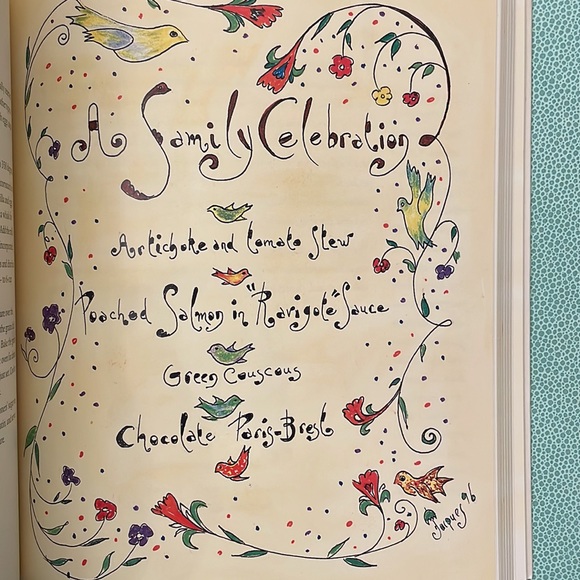 A Family Celebration
Artichoke and tomato Stew
Poached Salmon in "Ravigote" Sauce
Green Couscous
Chocolate Paris-Brest
Jacques 96